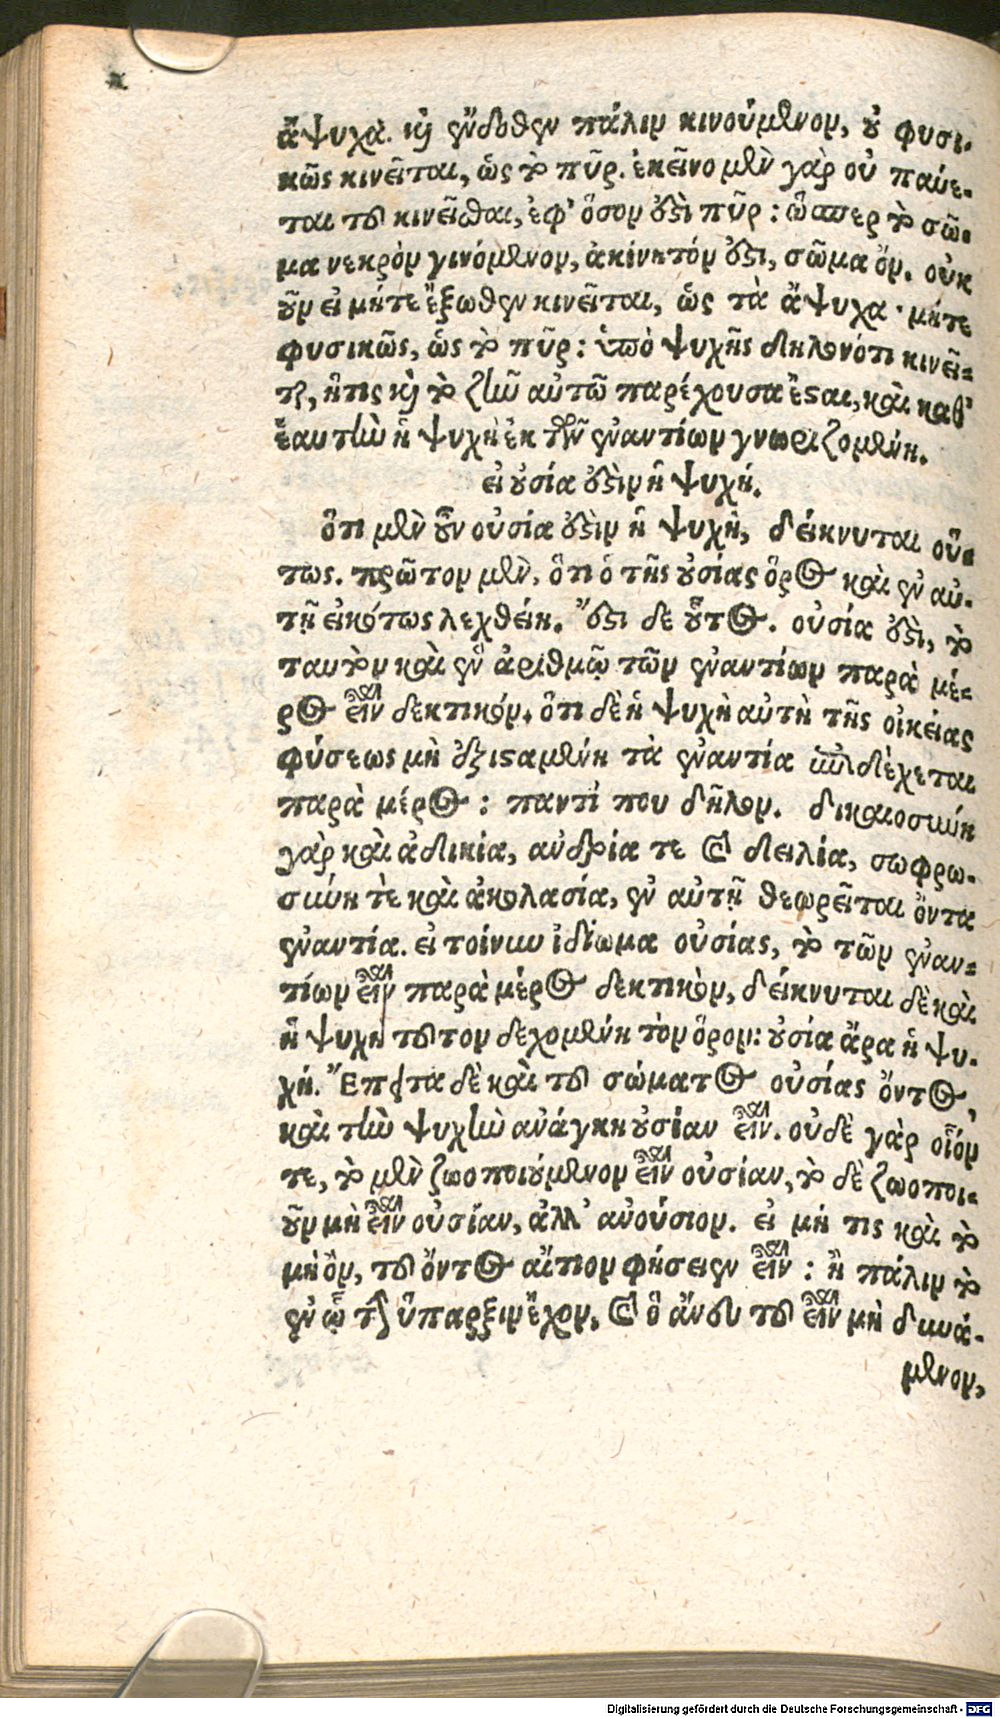 ἄψυχα. καὶ ἔνδοθεν πάλιν κινούμενον, οὐ φυσι-
κῶς κινεῖται, ὡς τὸ πῦρ. ἐκεῖνο μὲν γὰρ οὐ παύε-
ται τοῦ κινεῖσθαι, ἐφ' ὅσον ἐστὶ πῦρ : ὥσπερ τὸ σῶ-
μα νεκρὸν γινόμενον, ἀκίνητόν ἐστι, σῶμα ὄν. οὐκ
οὖν εἰ μήτε ἔξωθεν κινεῖται, ὡς τὰ ἄψυχα · μήτε
φυσικῶς, ὡς τὸ πῦρ : ὑπὸ ψυχῆς δηλονότι κινεῖ-
ται, ἥτις καὶ τὸ ζῆν αὐτῶ παρέχουσα ἔσαι, καὶ καθ'
ἑαυτὴν ἡ ψυχὴ ἐκ τῶν ἐναντίων γνωριζομένη.
εἰ οὐσία ἐστὶν ἡ ψυχή.
ὅτι μὲν οὖν οὐσία ἐστὶν ἡ ψυχὴ, δείκνυται οὕ-
τως. πρῶτον μὲν, ὅτι ὁ τῆς οὐσίας ὅρος καὶ ἐν αὐ-
τῇ εἰκότως λεχθείη. Ἔστι δε οὗτος. οὐσία ἐστὶ, τὸ
ταυτὸν καὶ ἓν ἀριθμῷ τῶν ἐναντίων παρὰ μέ-
ρος εἶναι δεκτικόν. ὅτι δὲ ἡ ψυχὴ αὐτὴ τῆς οἰκείας
φύσεως μὴ ἐξισαμένη τὰ ἐναντία ἐπιδέχεται
παρὰ μέρος : παντί που δῆλον. δικαιοσύνη
γὰρ καὶ ἀδικία, ανδρία τε καὶ δειλία, σωφρω-
σύνη τὲ καὶ ἀκολασία, ἐν αὐτῇ θεωρεῖται ὄντα
ἐναντία. εἰ τοίνυν ἰδίωμα οὐσίας, τὸ τῶν ἐναν-
τίων εἶναι παρὰ μέρος δεκτικὸν, δείκνυται δὲ καὶ
ἡ ψυχὴ τοῦτον δεχομένη τὸν ὅρον : οὐσία ἄρα ἡ ψυ-
χή. Ἔπειτα δὲ καὶ τοῦ σώματος οὐσίας ὄντος,
καὶ τὴν ψυχὴν ανάγκη οὐσίαν εἶναι. οὐδὲ γὰρ οἷόν
τε, τὸ μὲν ζωοποιούμενον εἶναι οὐσίαν, τὸ δὲ ζωοποι-
οῦν μὴ εἶναι οὐσίαν, ἀλλ' ανούσιον. εἰ μή τις καὶ τὸ
μὴ ὂν, τοῦ ὄντος αἴτιον φήσειεν εἶναι : ἢ πάλιν τὸ
ἐν ᾧ τὴν ὕπαρξιν ἔχον, καὶ ὃ ἄνευ τοῦ εἶναι μὴ δυνά-
μενον,
Digitalisierung gefördert durch die Deutsche Forschungsgemeinschaft - DFG